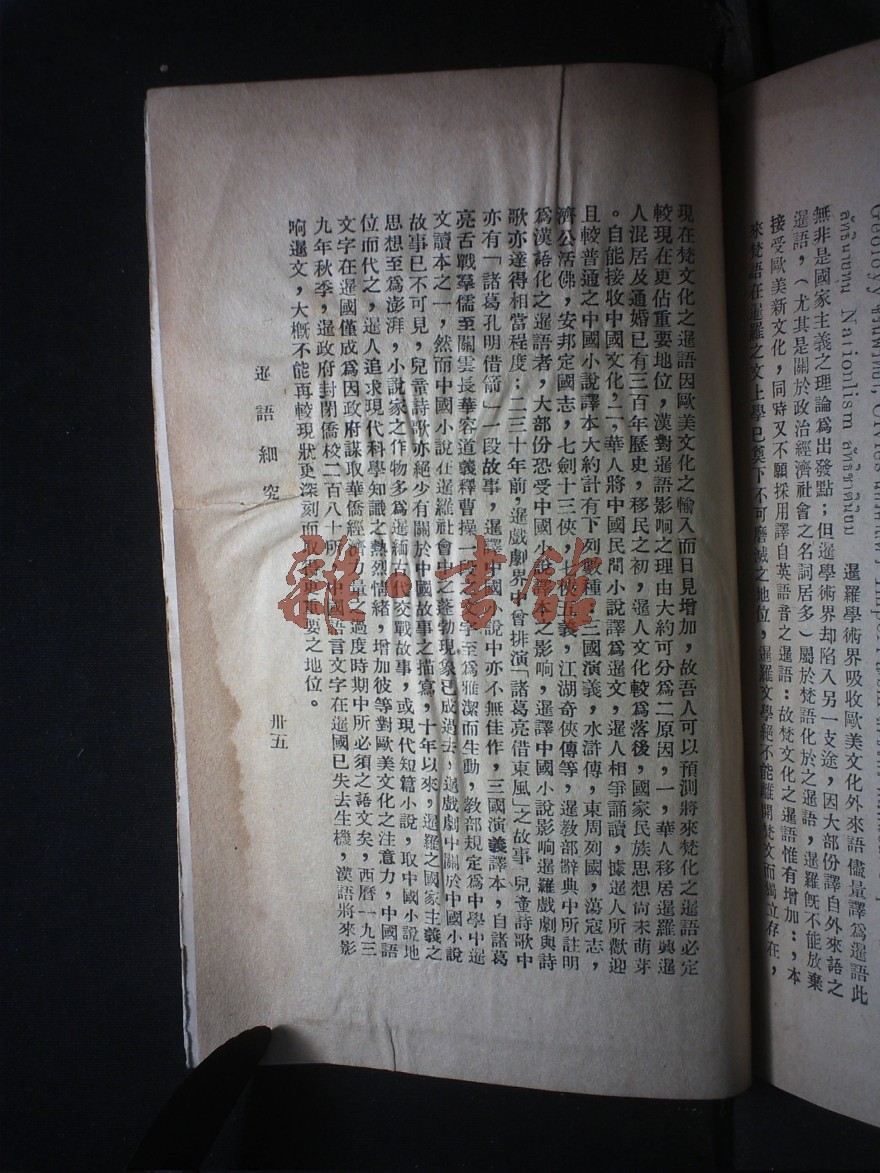 Geology
ลัทธินายทุน Nationlism ลัทธิชาตินิยม 暹羅學術界吸收歐美文化外來語儘量譯爲暹語此
無非是國家主義之理論爲出發點；但暹學術界却陷入另一支途，因大部份譯自外來語之
暹語，（尤其是關於政治經濟社會之名詞居多）屬於梵語化於之暹語，暹羅旣不能放棄
接受歐美新文化，同時又不願採用譯自英語音之暹語：故梵文化之暹語惟有增加：，本
來梵語在暹羅之文上學已奠下不可磨滅之地位，暹羅文學絕不能離開梵文而獨立存在，
現在梵文化之暹語因歐美文化之輸入而日見增加，故吾人可以預測將來梵化之暹語必定
較現在更佔重要地位，漢對暹語影响之理由大約可分爲二原因，一，華人移居暹羅與暹
人混居及通婚已有三百年歷史，移民之初，暹人文化較爲落後，國家民族思想尚未萌芽
。自能接收中國文化，二，華人將中國民間小說譯爲暹文，暹人相爭誦讀，據暹人所歡迎
且較普通之中國小說譯本大約計有下列數種，三國演義，水滸傳，東周列國，蕩寇志，
濟公活佛，安邦定國志，七劍十三俠，七俠五義，江湖奇俠傳等，暹教部辭典中所註明
爲漢語化之暹語者，大部份恐受中國小說譯本之影响，暹譯中國小說影响暹羅戲劇與詩
歌亦達得相當程度：二三十年前，暹戲劇界中曾排演「諸葛亮借東風」之故事 兒童詩歌中
亦有「諸葛孔明借箭」一段故事，暹譯中國 說中亦不無佳作，三國演義譯本，自諸葛
亮舌戰羣儒至關雲長華容道義釋曹操一段 字至爲雅潔而生動，敎部規定爲中學中暹
文讀本之一，然而中國小說在暹羅社會中之蓬勃現象已成過去，暹戲劇中關於中國小說
故事已不可見，兒童詩歌亦絕少有關於中國故事之描寫，十年以來，暹羅之國家主義之
思想至爲澎湃，小說家之作物多爲暹緬古代交戰故事，或現代短篇小說，取中國小說地
位而代之，暹人追求現代科學知識之熱烈情緒，增加彼等對歐美文化之注意力，中國語
文字在暹國僅成爲因政府謀取華僑經濟力量之過度時期中所必須之語文矣，西曆一九三
九年秋季，暹政府封閉僑校二百八十所 中國語言文字在暹國已失去生機，漢語將來影
响暹文，大槪不能再較現狀更深刻而取 更重要之地位。
暹語細究
卅五
雜書館